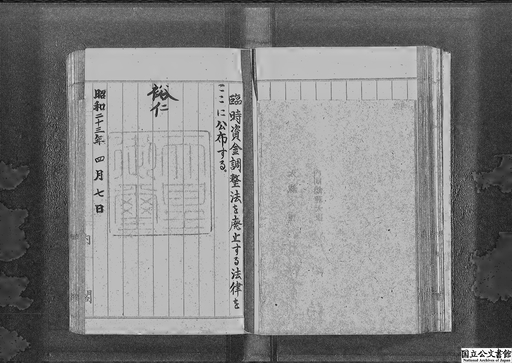 臨時資金調整法を廃止する法律を
ここに公布する。
裕仁
昭和二十三年四月七日
内閣
国立公文書館
National Archives of Japan